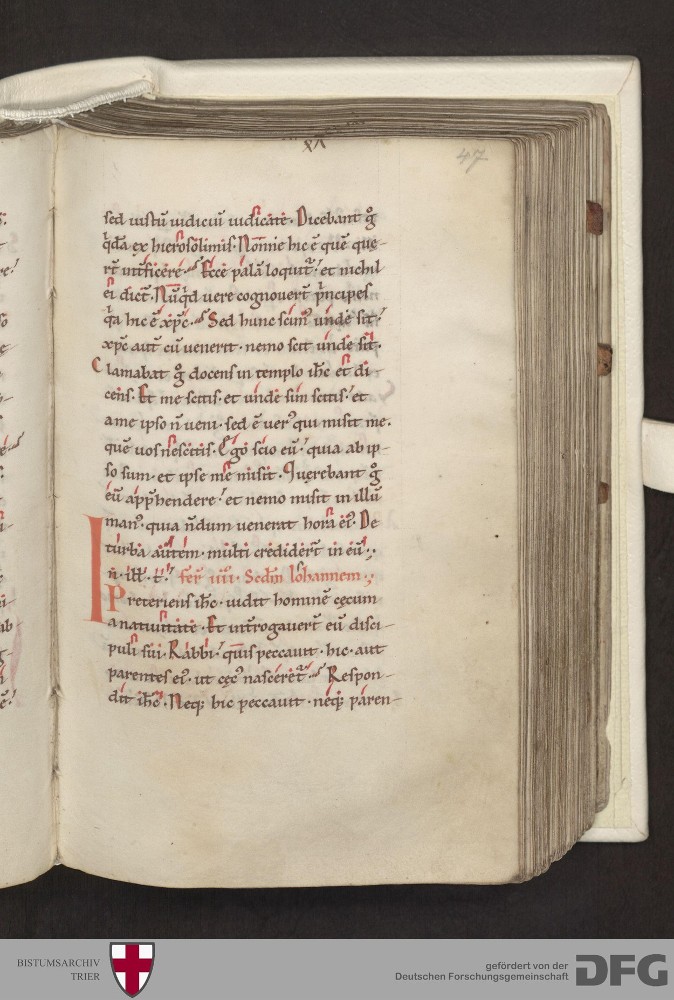 XV
47
sed iustū iudiciū iudicate. Dicebant g̊
q̇dā ex hierosolimis. Nonne hic ē quē que-
rt̄ int̄ficere. Ecce palā loquit̄. et nichil
ei dic̄t. Nūq̇d vere cognouer̄t p̄ncipes
q̇a hic ē xp̄c. Sed hunc scim᷒ unde sit.
xp̄c aut̄ cū uenerit. nemo scit unde sit.
Clamabat g̊ docens in templo ih̄c et di-
cens. Et me scitis. et unde sim scitis. et
a me ipso n̄ ueni. sed ē uer᷒ qui misit me.
quē uos nescitis. Ego scio eū. quia ab ip-
so sum. et ipse me misit. Querebant g̊
eū app̄hendere. et nemo misit in illū
man᷒. quia n̄dum uenerat hora ei᷒. De
turba autem. multi credider̄t in eū.
fer̄ iiii. Scd̄m Iohannem.
Preteriens ih̄c. uidit hominē cęcum
a natiuitate. Et int̄rogauer̄t eū disci-
puli sui. Rabbi. quis peccauit. hic. aut
parentes ei᷒. ut cęc᷒ nasceret̄. Respon-
dit ih̄c. Neq; hic peccauit. neq; paren-
BISTUMSARCHIV
TRIER
gefördert von der
Deutschen Forschungsgemeinschaft
DFG